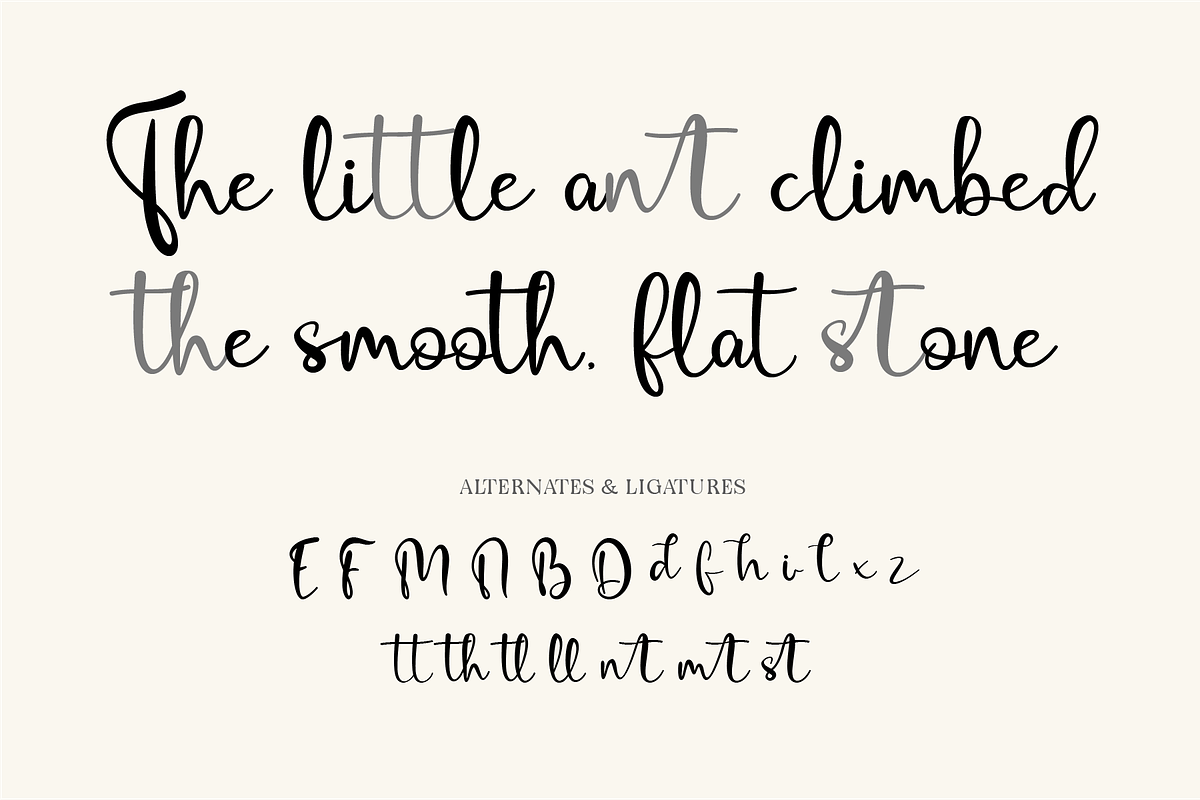 The little ant climbed
the smooth. flat stone
ALTERNATES & LIGATURES
E F M N B D d f h i l x z
tt th tl ll nt mt st